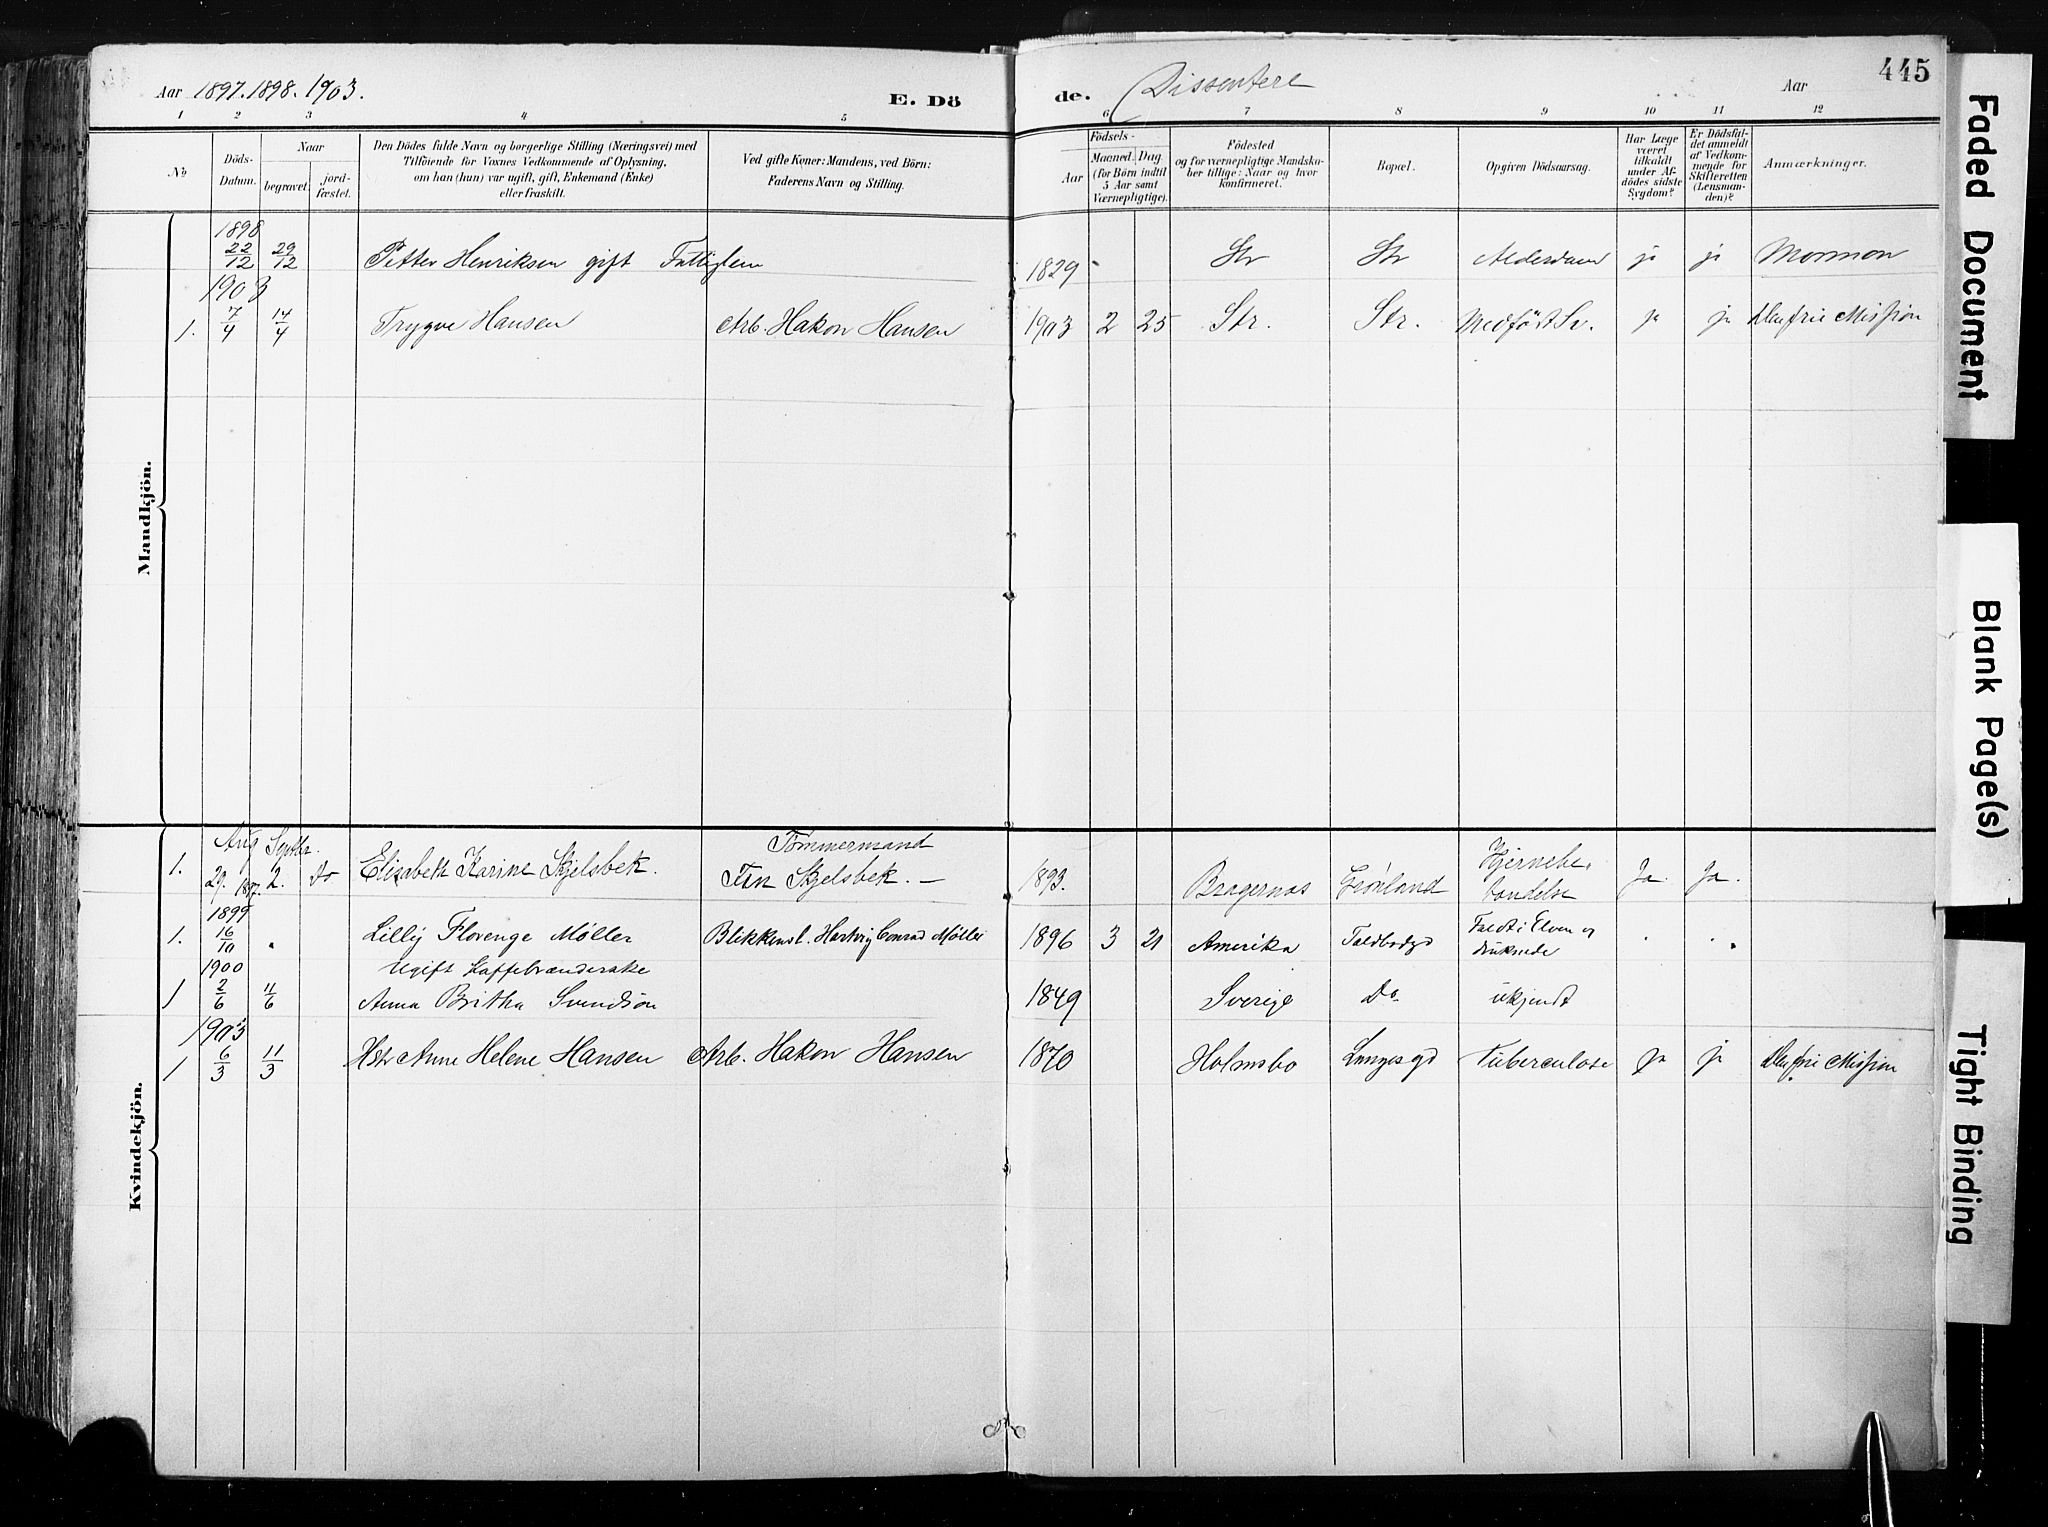 Aar 1897. 1898. 1903.
E. Dö
de.
Dissentere
Aar
445
1 2 3 4 5 6 7 8 9 10 11 12
No
Döds-
Datum.
Naar
begravet.
jord-
fæstet.
Den Dödes fulde Navn og borgerlige Stilling (Næringsvei) med
Tilföiende for Voxnes Vedkommende af Oplysning,
om han (hun) var ugift, gift, Enkemand (Enke)
eller fraskilt.
Ved gifte Koner: Mandens, ved Börn:
Faderens Navn og Stilling.
Födsels-
Aar
Maaned. Dag
(for Börn indtil
5 Aar samt
Værnepligtige).
Födested
og for værnepligtige Mandska-
ber tillige: Naar og hvor
konfirmeret.
Bopæl.
Opgiven Dödsaarsag.
Har Læge
været
tilkaldt
under Af-
dödes sidste
Sygdom?
Er Dödsfal-
det anmeldt
af Vedkom-
mende for
Skifteretten
(Lensman-
den)?
Anmærkninger.
Mandkjön.
1898
22/12 29/12 Petter Henriksen gift Fattiglem 1829 - Str Str ja ja Mormon
1903
1. 7/4 14/4 Trygve Hansen Arb. Hakon Hansen 1903 2 25 Str. Str. Medfödt Sv. ja ja Den frie Mission
Kvindekjön.
Aug Septbr. Tömmermand Hjernebe-
1. 29. 1897. 2. Do Elisabeth Karine Skjelsbek. Fin Skjelsbek. — 1893. Bragernas Grønland tændelse Ja. Ja.
1899
1. 16/10 " Lilly Florenge Møller Blikkensl. Hartvig Conrad Møller 1896 3 21 Amerika Toldbodgd Faldt i Elven og
druknede " "
1900 Ugift Kaffebrænderske
1 2/6 11/6 Anna Britha Svendsön 1849 Sverige Do ukjendt
1903
1 6/3 11/3 Hstr Anne Helene Hansen Arb. Hakon Hansen 1870 Holmsbo Langesgd Tuberculose ja ja Den frie Mission
Faded Document
Blank Page(s)
Tight Binding